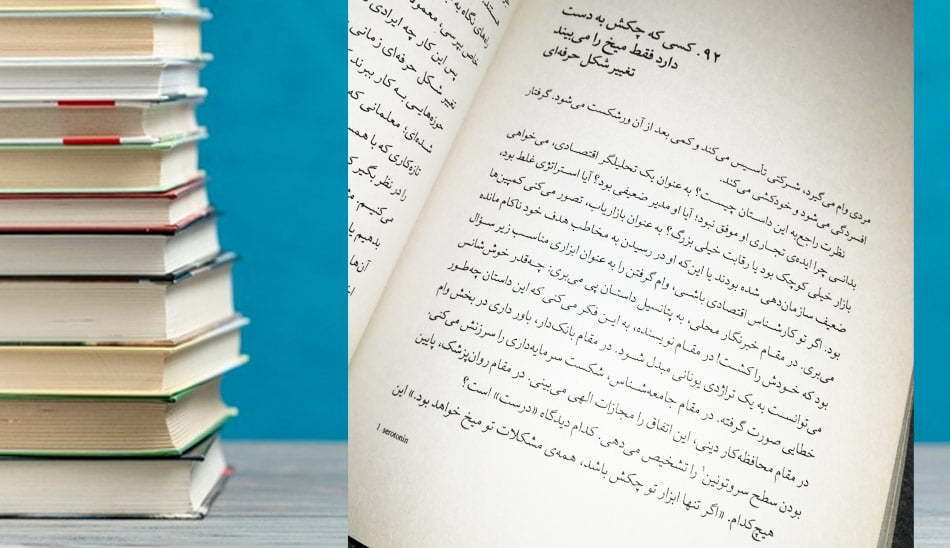 ۹۲. کسی که چکش به دست
دارد فقط میخ را می‌بیند
تغییر شکل حرفه‌ای
مردی وام می‌گیرد، شرکتی تأسیس می‌کند و کمی بعد از آن ورشکست می‌شود، گرفتار
افسردگی می‌شود و خودکشی می‌کند.
نظرت راجع به این داستان چیست؟ به عنوان یک تحلیلگر اقتصادی، می‌خواهی
بدانی چرا ایده‌ی تجاری او موفق نبود؛ آیا او مدیر ضعیفی بود؟ آیا استراتژی غلط بود،
بازار خیلی کوچک بود یا رقابت خیلی بزرگ؟ به عنوان بازاریاب، تصور می‌کنی کمپین‌ها
ضعیف سازمان‌دهی شده بودند یا این که او در رسیدن به مخاطب هدف خود ناکام مانده
بود. اگر تو کارشناس اقتصادی باشی، وام گرفتن را به عنوان ابزاری مناسب زیر سؤال
می‌بری. در مقام خبرنگار محلی، به پتانسیل داستان پی می‌بری: چه‌قدر خوش‌شانس
بود که خودش را کشت! در مقام نویسنده، به این فکر می‌کنی که این داستان چه‌طور
می‌توانست به یک تراژدی یونانی مبدل شود. در مقام بانک‌دار، باور داری در بخش وام
خطایی صورت گرفته. در مقام جامعه‌شناس، شکست سرمایه‌داری را سرزنش می‌کنی.
در مقام محافظه‌کار دینی، این اتفاق را مجازات الهی می‌بینی. در مقام روان‌پزشک، پایین
بودن سطح سروتونین¹ را تشخیص می‌دهی. کدام دیدگاه «درست» است؟
هیچ‌کدام. «اگر تنها ابزار تو چکش باشد، همه‌ی مشکلات تو میخ خواهد بود.» این
1. serotonin
خاص بپرسی،
پس این کار چه ایرادی
تغییر شکل حرفه‌ای زمانی
حوزه‌هایی به کار ببرند
شده‌ای؛ معلمانی که
تازه‌کاری که با
را در نظر بگیر
می‌کنیم.
بدهیم یا
آن‌ها